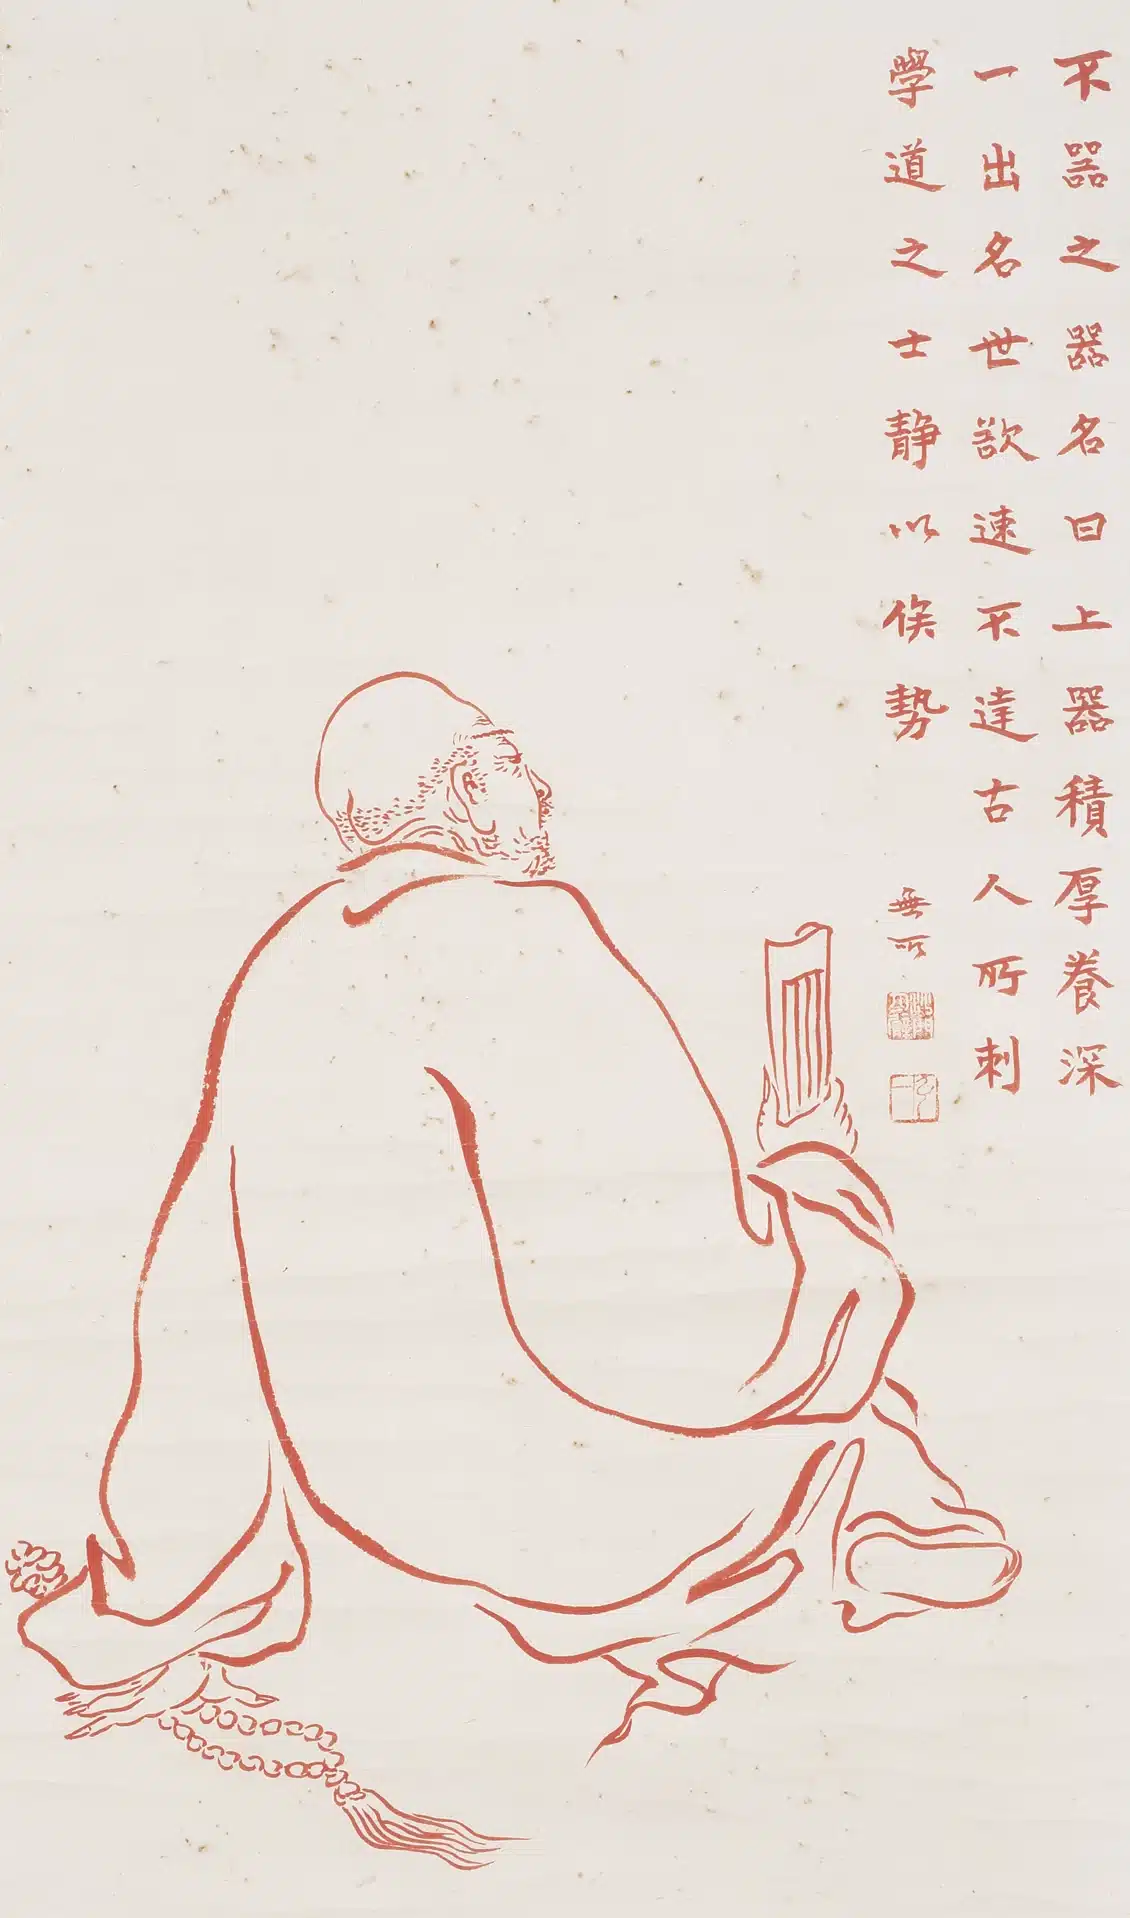 不器之器名曰上器積厚養深
一出名世欲速不達古人所刺
學道之士靜以俟勢
無所